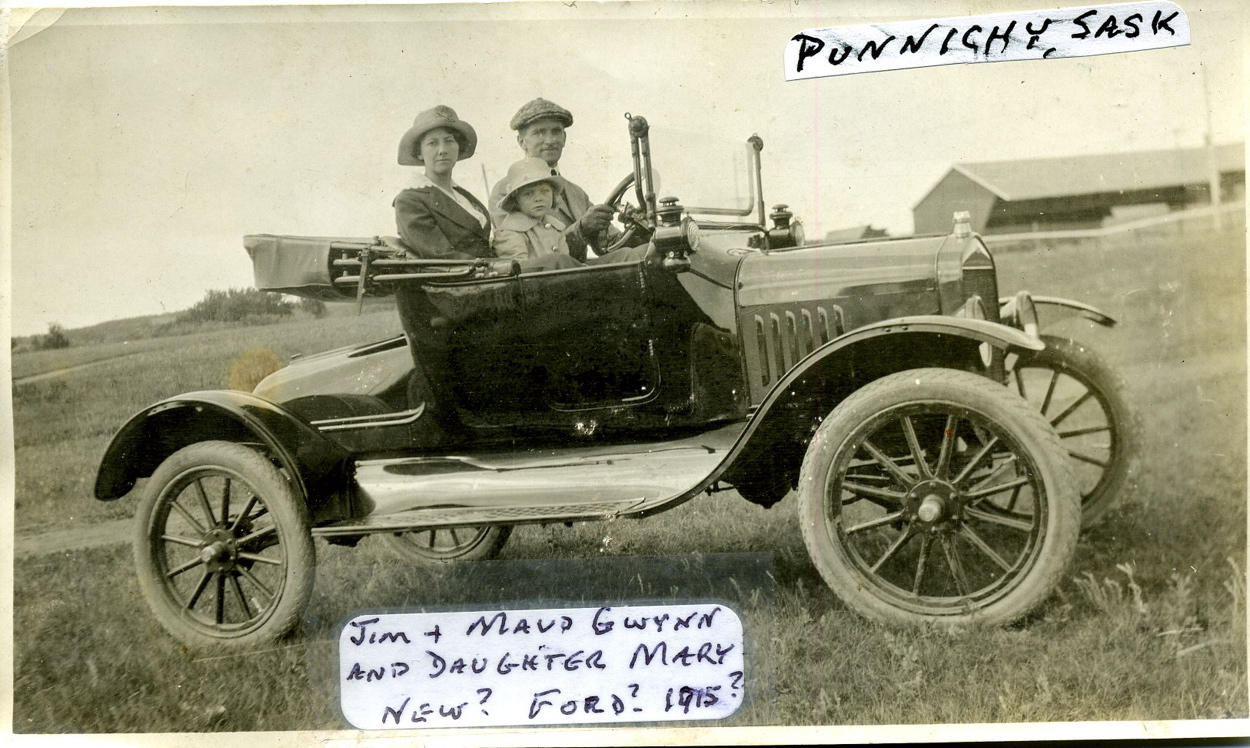 PUNNICHY, SASK
JIM + MAUD GWYNN
AND DAUGHTER MARY
NEW? FORD? 1915?